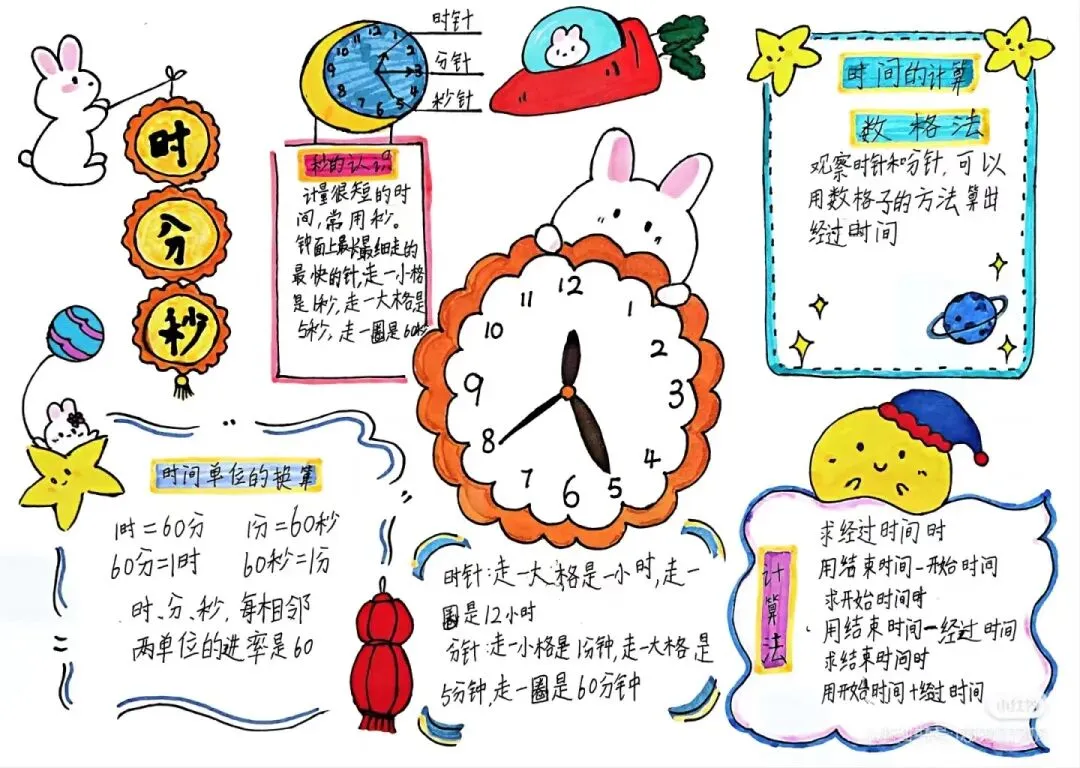 时
分
秒
12
1
2
3
4
5
6
7
8
9
10
11
时针
分针
秒针
秒的认识
计量很短的时
间,常用秒。
钟面上最长最细走的
最快的针,走一小格
是1秒,走一大格是
5秒,走一圈是60秒
时间的计算
数格法
观察时针和分针,可以
用数格子的方法算出
经过时间
12
1
2
3
4
5
6
7
8
9
10
11
时间单位的换算
1时=60分 1分=60秒
60分=1时 60秒=1分
时、分、秒,每相邻
两单位的进率是60
时针:走一大格是一小时,走一
圈是12小时
分针:走一小格是1分钟,走一大格是
5分钟,走一圈是60分钟
计算法
求经过时间时
用结束时间-开始时间
求开始时间时
用结束时间-经过时间
求结束时间时
用开始时间+经过时间
小红书